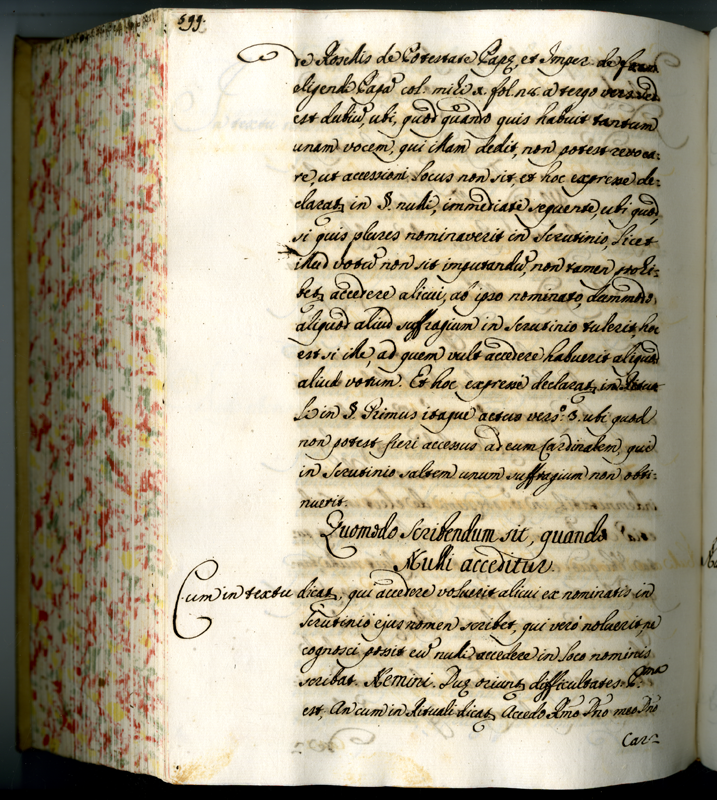 599.
de Rosellis de Potestate Papæ, et Imper. de
eligendi Papā col. mihi x. fol. a tergo vers. sed
est dubiū, ubi, quod quando quis habuit tantum
unam vocem, qui illam dedit, non potest revoca:
re, ut accessioni locus non sit, et hoc expresse de:
clarat, in §. nulli, immediate sequente, ubi quod,
si quis plures nominaverit in Scrutinio, licet
illud votū non sit imputandū, non tamen prohi:
bet, accedere alicui, ab ipso nominato, dummodo,
aliquod aliud suffragium in Scrutinio tulerit, hoc
est si ille, ad quem vult accedere habuerit aliquod
aliud votum. Et hoc expresse declarat, in Ritua
li in §. Primus itaque actus vers.º 3. ubi quod
non potest fieri accessus ad eum Cardinalem, qui
in Scrutinio saltem unum suffragium non obti:
nuerit.
Quomodo scribendum sit, quando
Nulli acceditur.
Cum in textu dicat, qui accedere voluerit alicui ex nominatis in
Scrutinio ejus nomen scribet, qui vero noluerit, ut
cognosci possit eū nulli accedere in loco nominis
scribat. Nemini. Duæ oriunt, difficultates. Pma
est, An cum in Rituali dicat, Accedo Rmo Dno meo Dno
Car